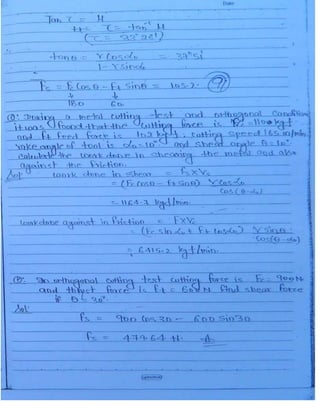 Date
Tan τ = μ
τ = tan⁻¹ μ
tanθ = r cosα₀ / 1 - r sinα₀ = 37°51'
Fs = Fc cosθ - Ft sinθ = 105.2
180 60
Q: During a metal cutting test and orthogonal condition
it was found that the cutting force is kgf
and Ft feed force is 102 kgf, cutting speed 165 m/min,
rake angle of tool is α₀=10° and shear angle θ=10°
calculate the work done in shearing the metal and also
against the friction.
Sol: work done in shear = Fs×Vs
= (Fc cosθ - Ft sinθ) V cosα₀ / cos(θ-α₀)
=
work done against in friction = F×Vc
= (Fc sinα₀ + Ft cosα₀) V sinθ / cos(θ-α₀)
= 6415.2 kgf/min
Q: In orthogonal cutting test cutting force is Fc = 900N
and thrust force is Ft = 600N find shear force
if θ = 30°
Sol:
Fs = 900 cos 30 - 600 sin 30
Fs = 479.64 N.